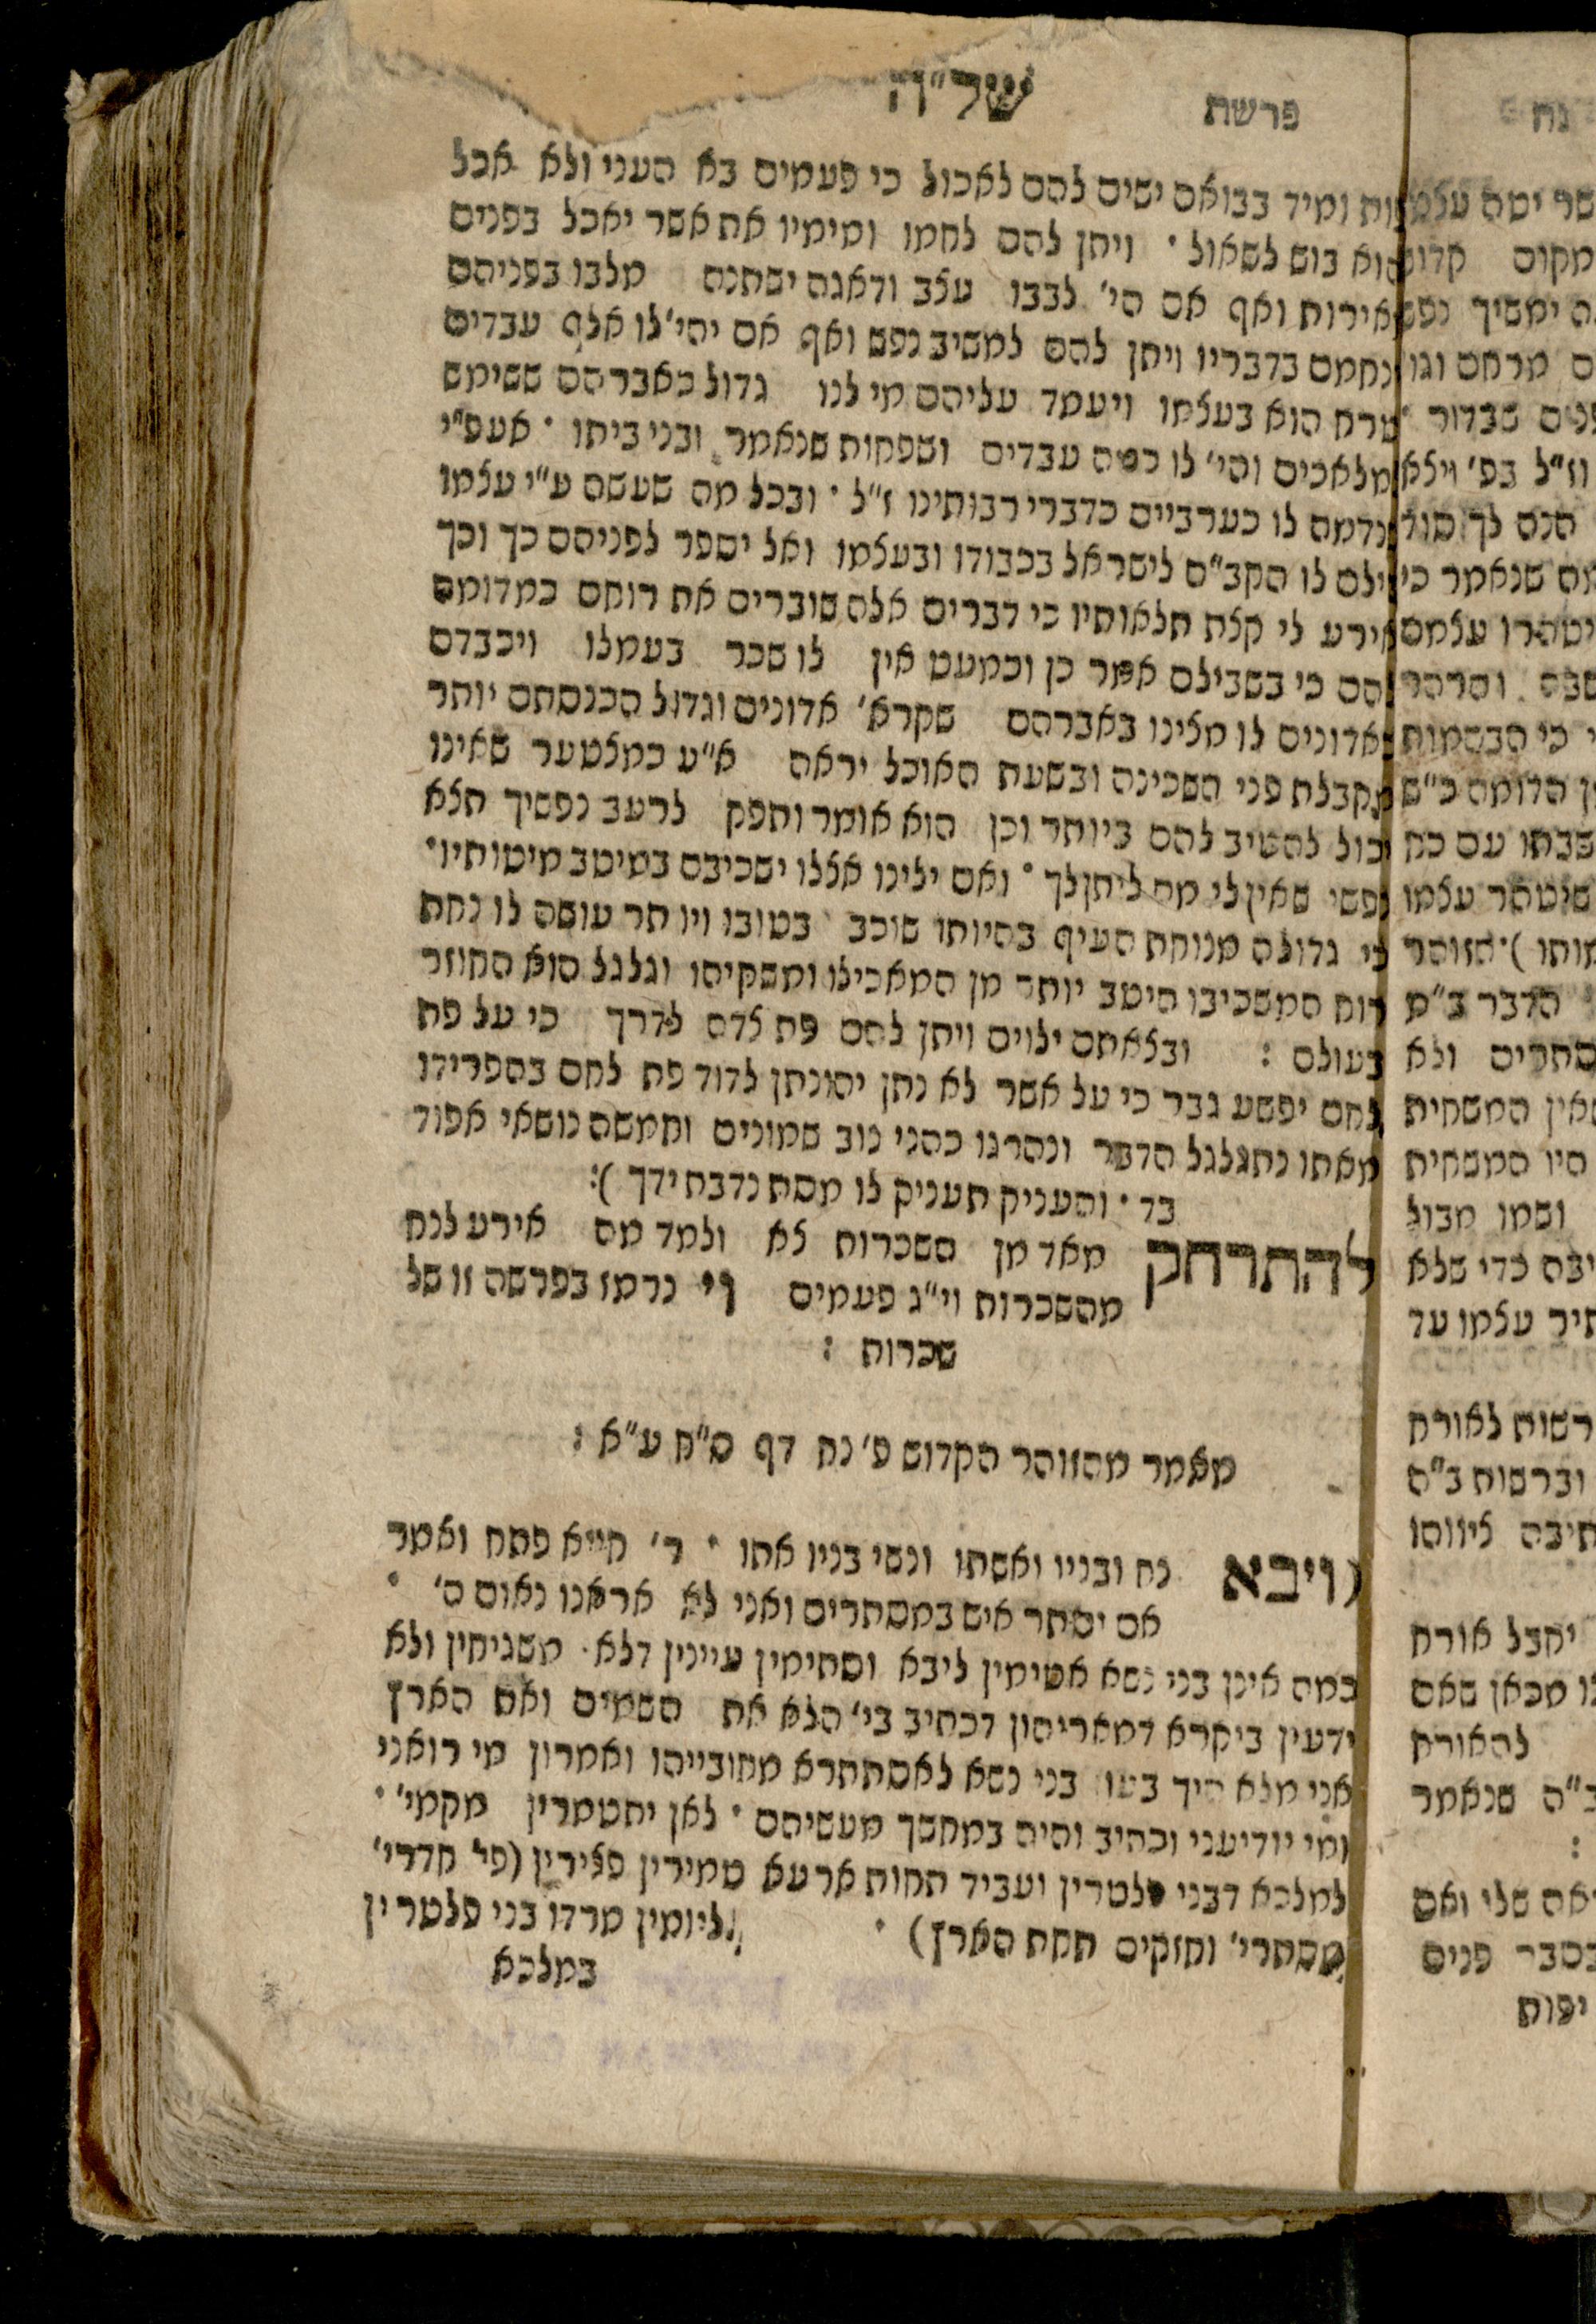 פרשת של"ה
ומיד בבואם ישים להם לאכול כי פעמים בא העני ולא אכל
הוא בוש לשאול ׳ ויתן להם לחמו ומימיו את אשר יאכל בפנים
מאירות ואף אם הי' לבבו עצב ודאגה ישחנה מלבו בפניהם
נחמם בדבריו ויתן להם למשיב נפש ואף אם יהי' לו אלף עבדים
טרח הוא בעצמו ויעמד עליהם מי לנו גדול מאברהם ששימש
מלאכים והי' לו כמה עבדים ושפחות שנאמר ובני ביתו ׳ אעפ"י
נדמה לו כערביים כדברי רבותינו ז"ל ׳ ובכל מה שעשה ע"י עצמו
ילם לו הקב"ה לישראל בכבודו ובעצמו ואל יספר לפניהם כך וכך
אירע לי קצת תלאותיו כי דברים אלה שוברים את רוחם כמדומם
הם כי בשבילם אמר כן וכמעט אין לו שכר בעמלו ויכבדם
אדונים לו מצינו באברהם שקרא' אדונים וגדול הכנסתם יותר
מקבלת פני השכינה ובשעת האוכל יראה א"ע כמצטער שאינו
יכול להטיב להם ביותר וכן הוא אומר ותפק לרעב נפשיך תצא
נפשי שאין לי מה ליתן לך ׳ ואם ילינו אצלו ישכיבם במיטב מיטותיו׳
כי גדולה מנוחת העיף בהיותו שוכב בטובו ויותר עושה לו נחת
רוח המשכיבו היטב יותר מן המאכילו ומשקיהו וגלגל הוא החוזר
בעולם : ובצאתם ילוים ויתן להם פת צדה לדרך כי על פת
לחם יפשע גבר כי על אשר לא נתן יהונתן לדוד פת לחם בהפרידו
מאתו נתגלגל הדבר ונהרגו כהני נוב שמונים וחמשה נושאי אפוד
בד ׳ והעניק תעניק לו מסת נדבת ידך ):
להתרחק מאד מן השכרות צא ולמד מה אירע לנח
מהשכרות וי"ג פעמים וי נרמז בפרשה זו של
שכרות :
מאמר מהזוהר הקדוש פ' נח דף ס"ח ע"א :
(ויבא נח ובניו ואשתו ונשי בניו אתו ׳ ר' חייא פתח ואמר
אם יסתר איש במסתרים ואני לא אראנו נאום ה' ׳
כמה אינן בני נשא אטימין ליבא וסתימין עיינין דלא משגיחין ולא
ידעין ביקרא דמאריהון דכתיב בי' הלא את השמים ואת הארץ
אני מלא היך בעו בני נשא לאסתתרא מחובייהו ואמרון מי רואני
ומי יודיעני וכתיב והיה במחשך מעשיהם ׳ לאן יתטמרין מקמי' ׳
למלכא דבני פלטרין ועביד תחות ארעא טמירין פצירין (פי' חדרי'
מסתרי' וחזקים תחת הארץ) ׳ ליומין מרדו בני פלטרין
במלכא
נח
מקום
ימשיך נפש
מרחם וגו
שבדור ׳
וז"ל בפ' וילא
הנה לך
שנאמר כי
עצמם
כי הבהמות
הדומה כ"ש
עם נח
עצמו
הזוהר
הדבר ב"מ
ולא
המשחית
היו המשחית
ושמו מבול
כדי שלא
עצמו עד
לאורח
וברשות ב"ה
יקבל אורח
מכאן שאם
להאורח
שנאמר
:
שלי ואם
בסבר פנים
יפות